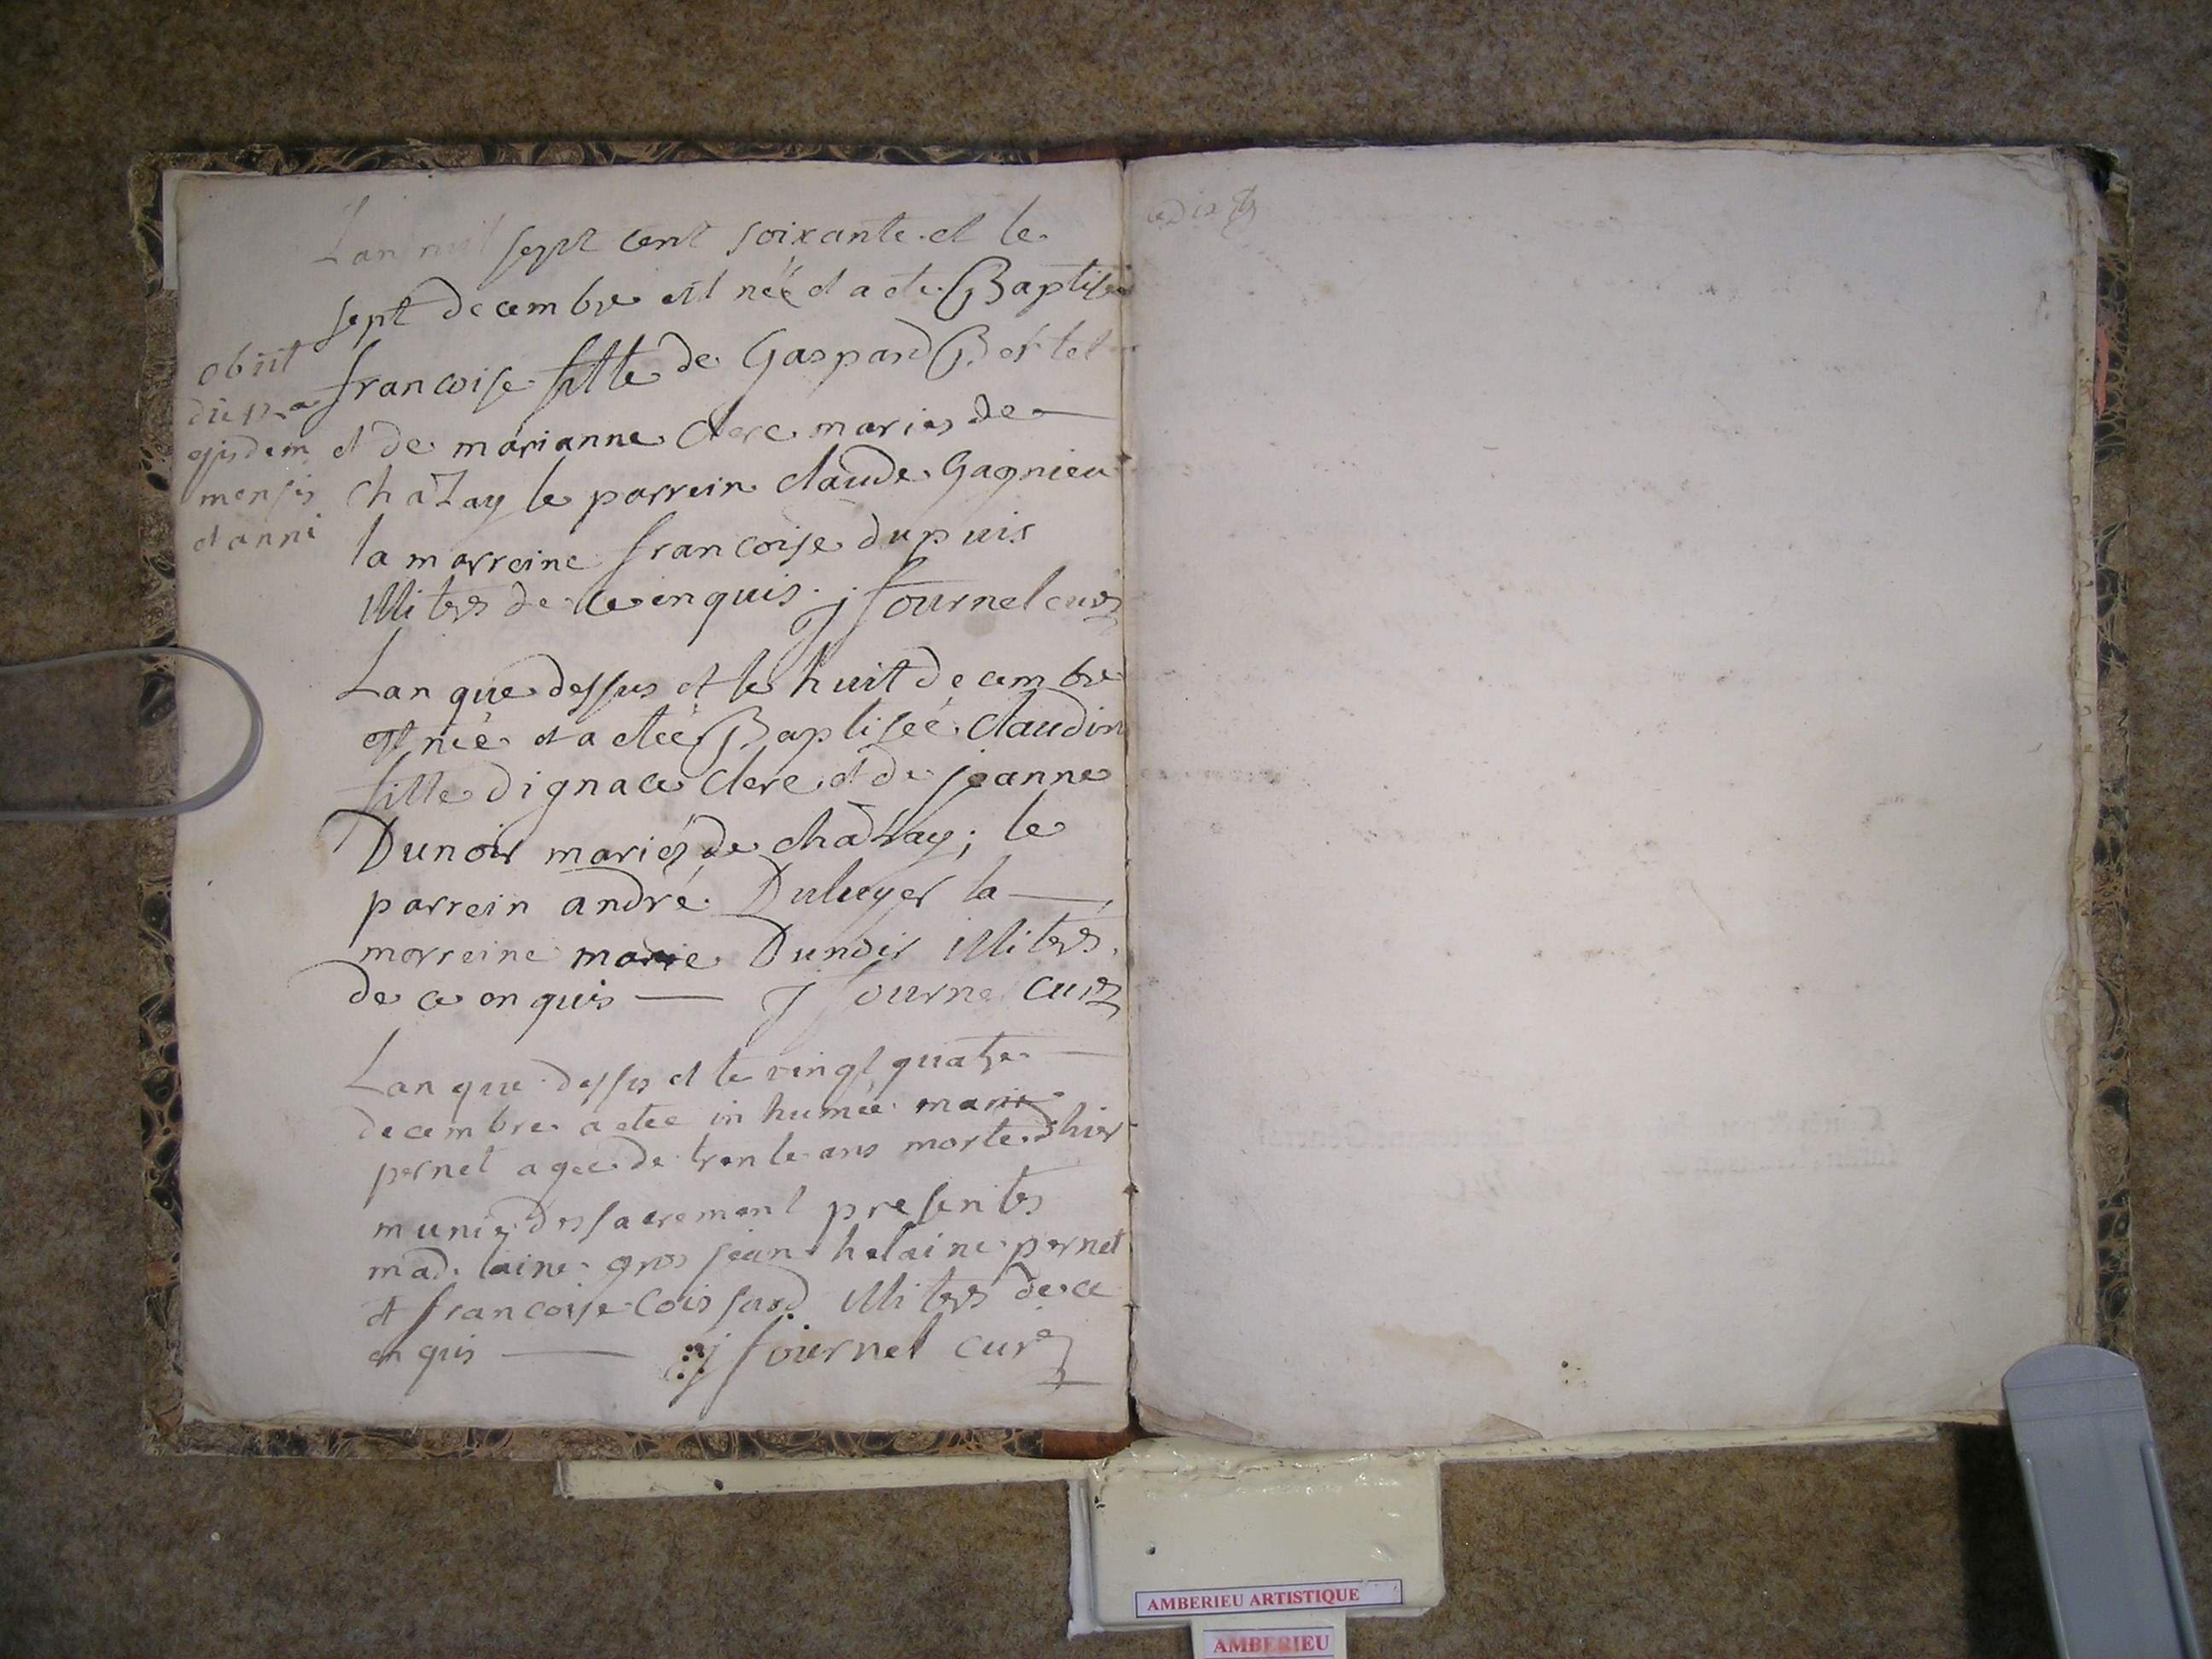 Lan mil sept cent soixante et le
sept decembre est néé et a ete Baptisée
francoise fille de Gaspard Bertet
et de marianne Clerc mariés de
chaZay le parrein claude Gagnieu
la marreine francoise dupuis
illiters de ce enquis. j fournel curé
obiit
die
ejusdem
mensis
et anni
Lan que dessus et le huit decembre
est néé et a etéé Baptiséé Claudin
fille dignace Clerc et de jeanne
Dunoir mariés de chaZay; le
parrein andré Duluyer la
marreine marie Dunoir illiters.
de ce enquis j fournel curé
Lan que dessus et le vingt quatre
decembre a eteé inhumeé marie
pernet ageé de trente ans morte dhier
munie des sacrement presentes
madelaine gros jean helaine pernet
et francoise Coissard illiters de ce
enquis j fournel curé
AMBERIEU ARTISTIQUE
AMBERIEU